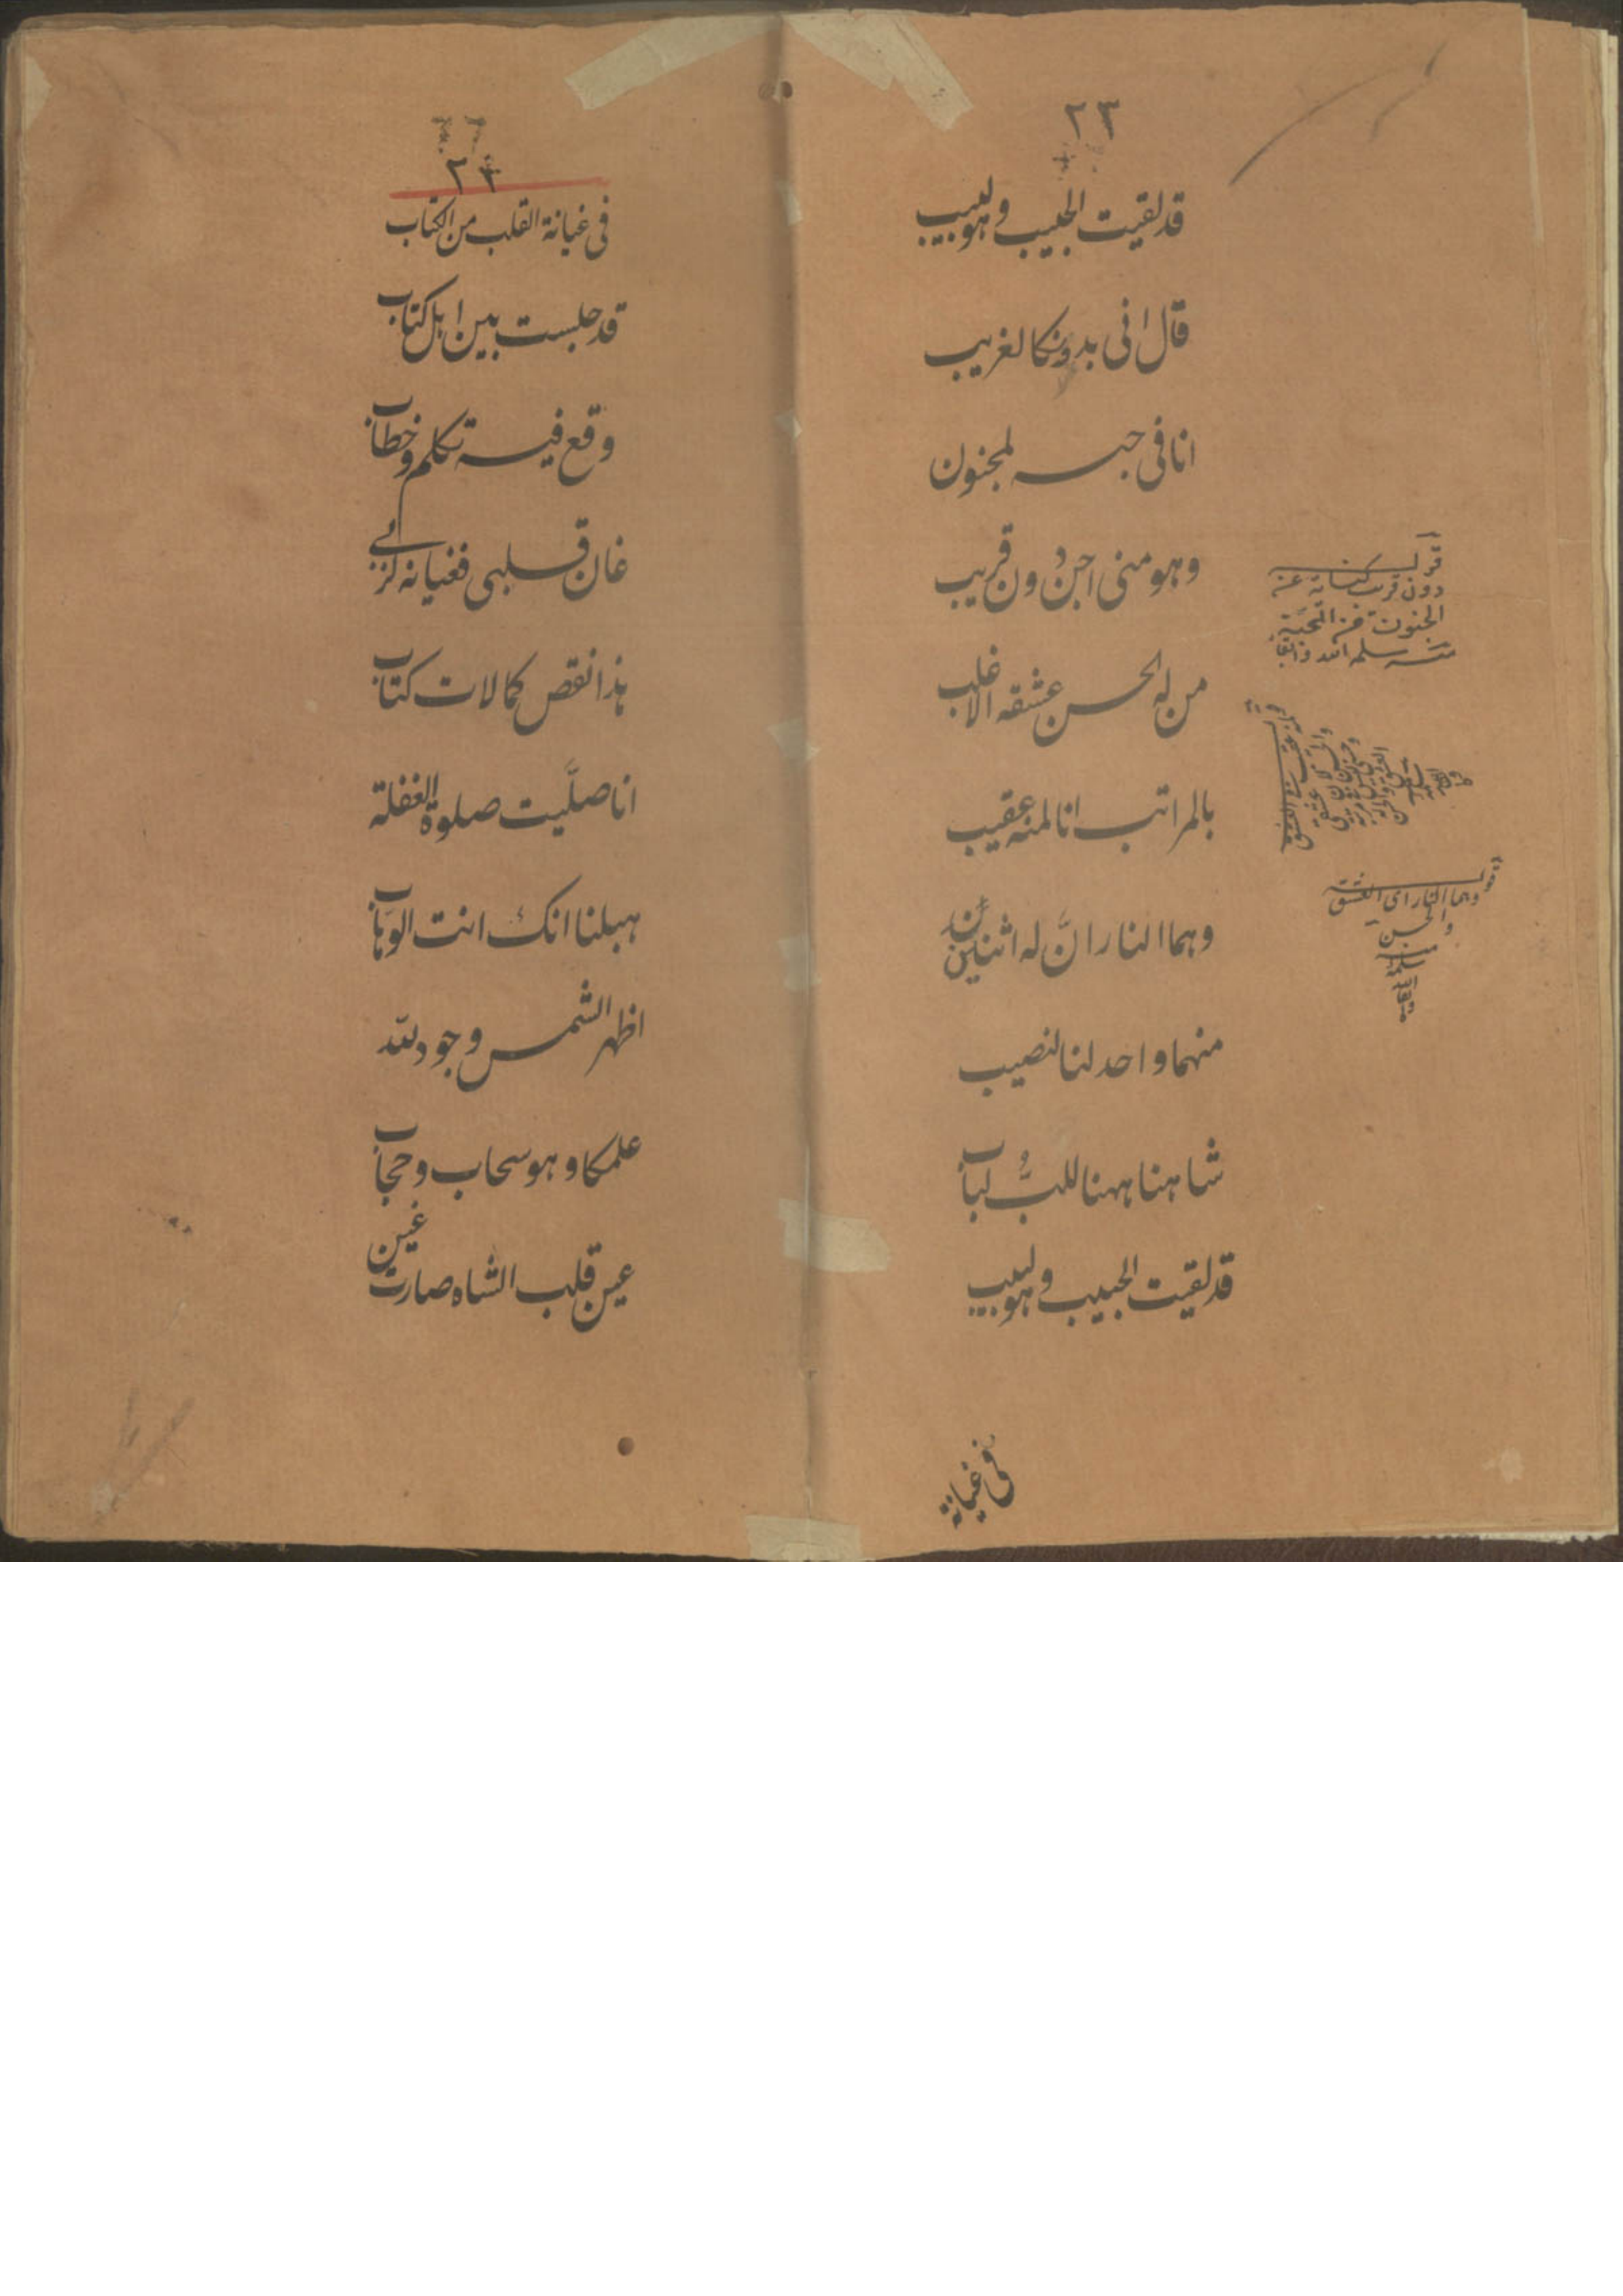 ٢٣
قد لقيت الحبيب وهو لبيب
قال انى بدونكا لغريب
انا فى حبسه لمجنون
وهو منى اجنّ دون قريب
من له الحسن عشقه الاغلب
بالمراتب انا لمنه عقيب
وهما الناران له اثنين
منهما واحد لنا لنصيب
شاهنا ههنا للبّ لباب
قد لقيت الحبيب وهو لبيب
قوله
دون قريب كناية عن
الجنون فى المحبة
منه سلمه الله وابقاه
قوله
وهما النار اى العشق
والحسن
منه
سلمه
الله
وابقاه
فى غيانة
٢٤
فى غيانة القلب من الكتاب
قد جلست بين اهل كتاب
وقع فيه تكلم وخطاب
غان قلبى فغيانه لربى
هذا نقص كمالات كتاب
انا صلّيت صلوة الغفلة
هب لنا انك انت الوهاب
اظهر الشمس وجود لله
علمكا وهو سحاب وحجاب
عين قلب الشاه صارت غين